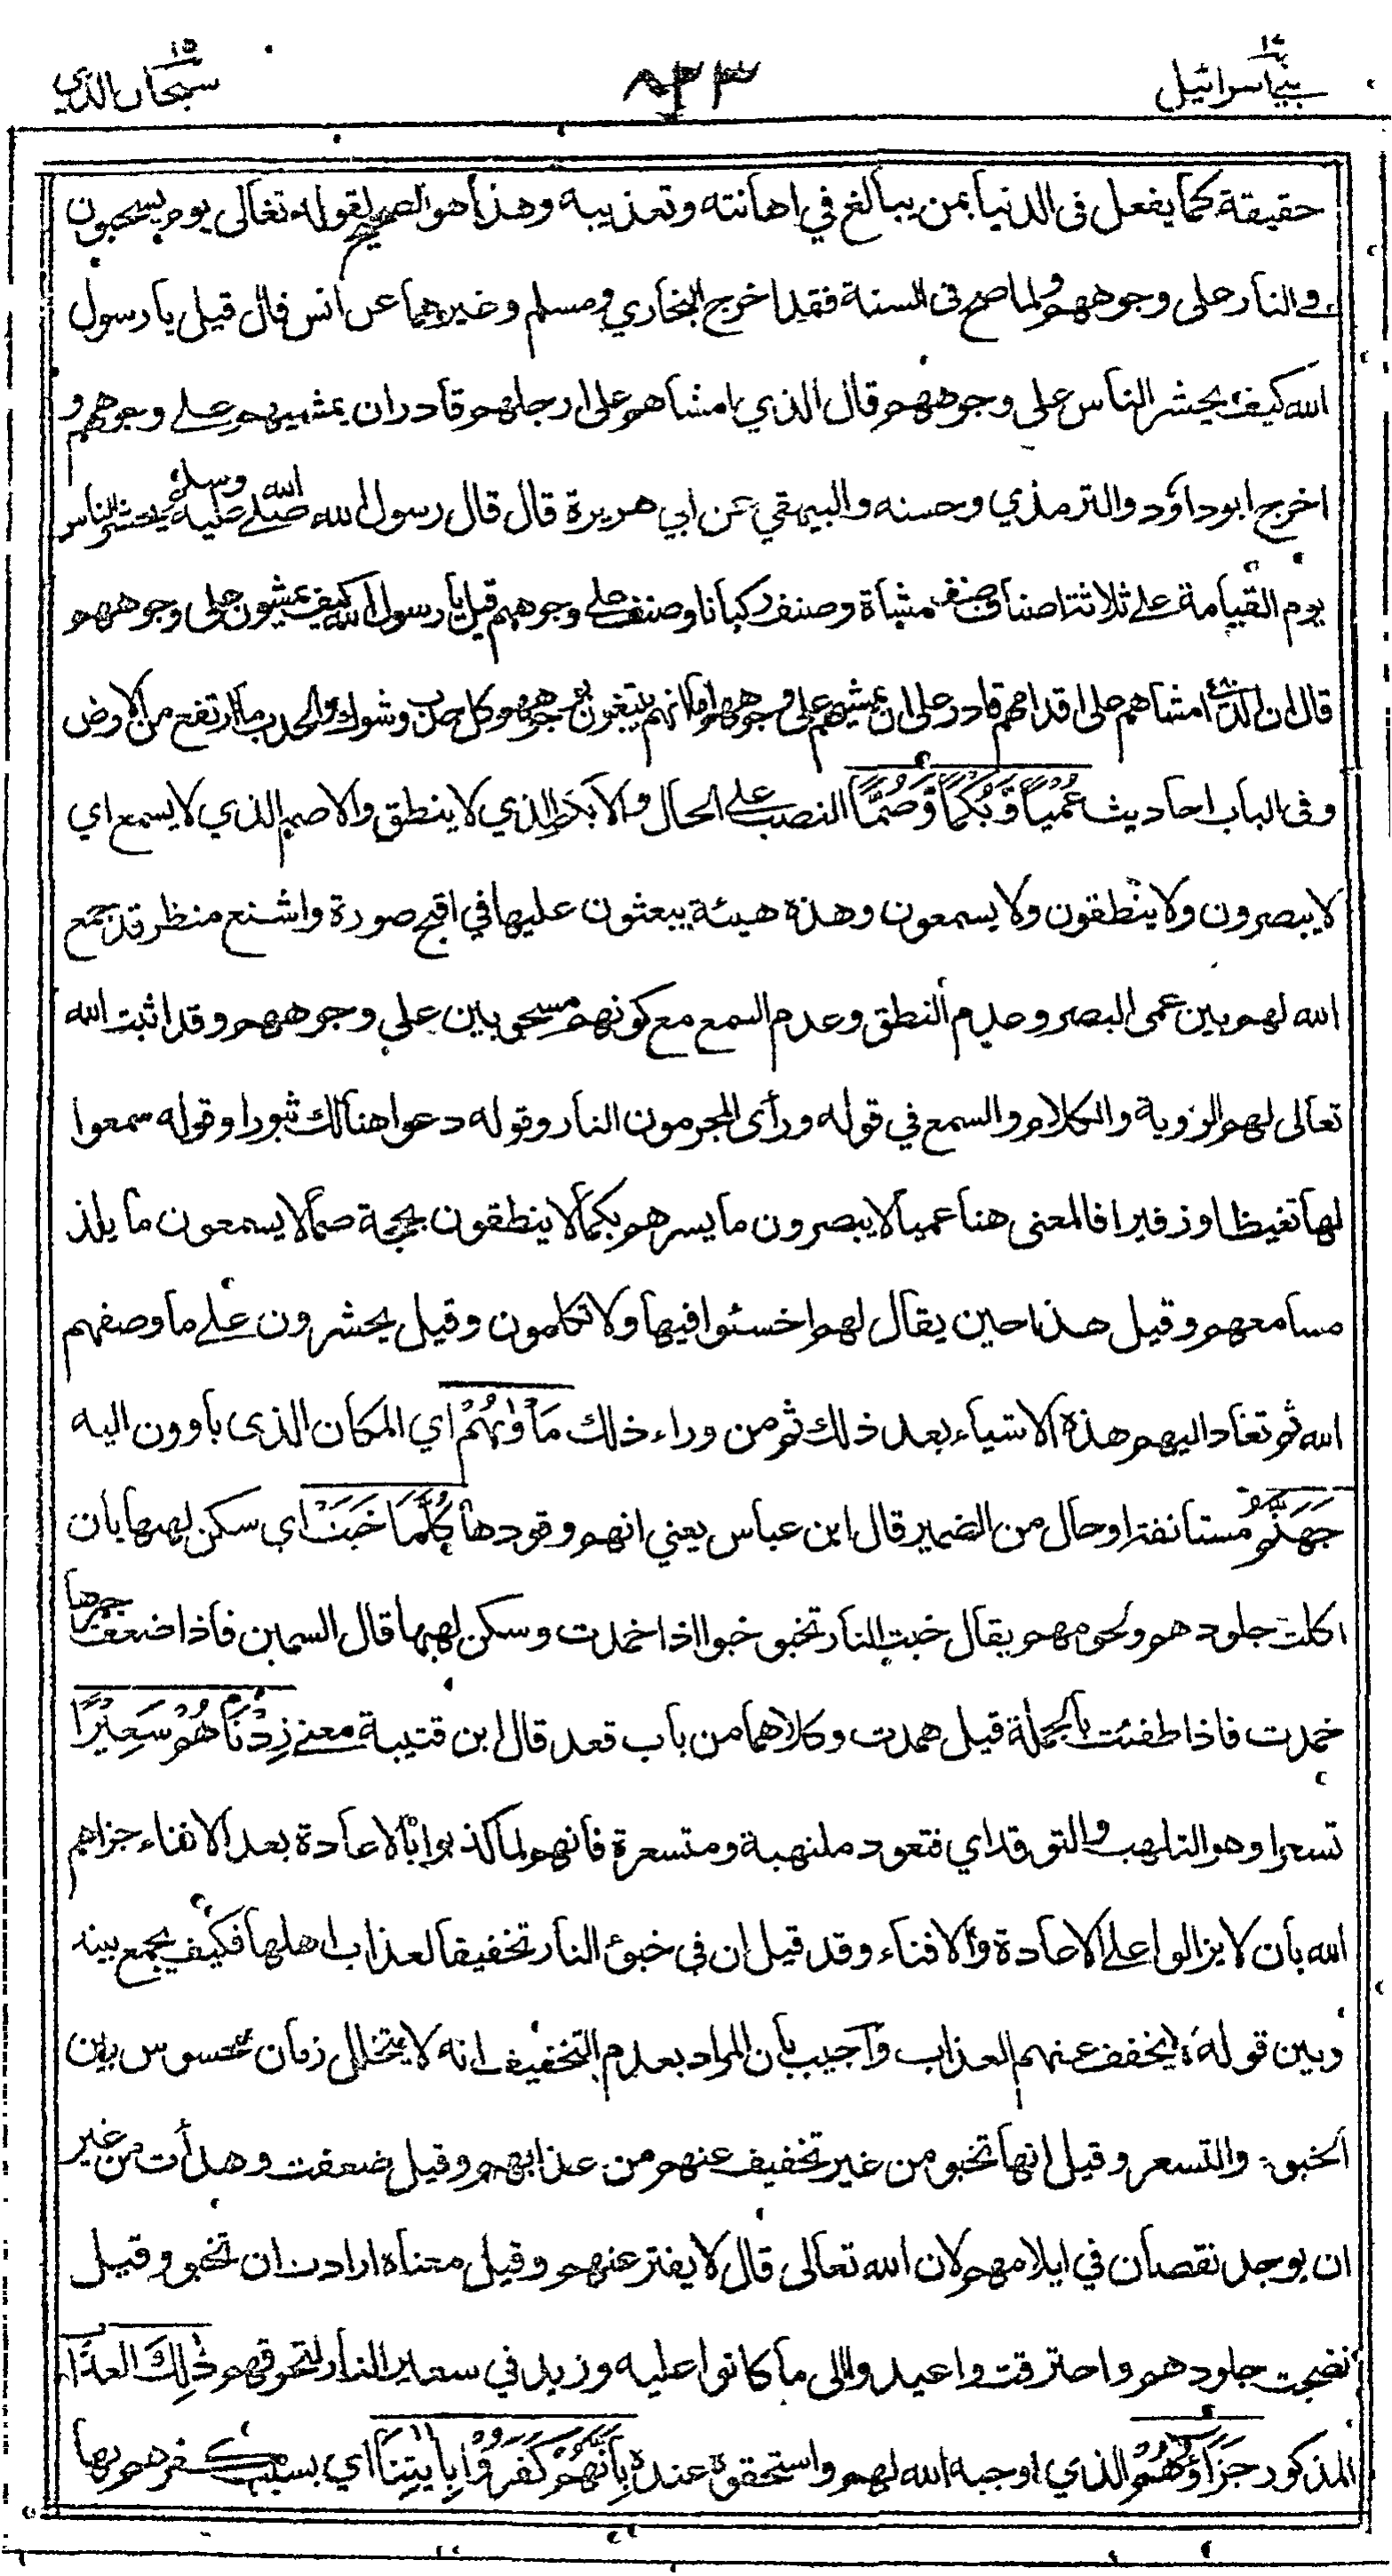 بني اسرائيل ١٧
٨٣٣
سبحان الذي ١٥
حقيقة كما يفعل في الدنيا بمن يبالغ في اهانته وتعذيبه وهذا هو الصحيح لقوله تعالى يوم يسحبون
في النار على وجوههم ولما صح في السنة فقد اخرج البخاري ومسلم وغيرهما عن انس قال قيل يا رسول
الله كيف يحشر الناس على وجوههم قال الذي امشاهم على ارجلهم قادر ان يمشيهم على وجوههم و
اخرج ابوداؤد والترمذي وحسنه والبيهقي عن ابي هريرة قال قال رسول الله صلى الله عليه وسلم يحشر الناس
يوم القيامة على ثلاثة اصناف صنف مشاة وصنف ركبانا وصنف على وجوههم قيل يا رسول الله كيف يمشون على وجوههم
قال ان الذي امشاهم على اقدامهم قادر على ان يمشيهم على وجوههم اما انهم يتقون بوجوههم كل حدب وشوك والحدب ما ارتفع من الارض
وفي الباب احاديث عُمْيًا وَّبُكْمًا وَّصُمًّا النصب على الحال والابكم الذي لا ينطق والاصم الذي لا يسمع اي
لا يبصرون ولا ينطقون ولا يسمعون وهذه هيئة يبعثون عليها في اقبح صورة واشنع منظر قد جمع
الله لهم بين عمى البصر وعدم النطق وعدم السمع مع كونهم مسحوبين على وجوههم وقد اثبت الله
تعالى لهم الرؤية والكلام والسمع في قوله ورأى المجرمون النار وقوله دعوا هنالك ثبورا وقوله سمعوا
لها تغيظا وزفيرا فالمعنى هنا عميا لا يبصرون ما يسرهم بكما لا ينطقون بحجة صما لا يسمعون ما يلذ
مسامعهم وقيل هذا حين يقال لهم اخسئوا فيها ولا تكلمون وقيل يحشرون على ما وصفهم
الله ثم تعاد اليهم هذه الاشياء بعد ذلك ثم من وراء ذلك مَأْوٰىهُمْ اي المكان الذي يأوون اليه
جَهَنَّمُ مستانفة او حال من الضمير قال ابن عباس يعني انهم وقودها كُلَّمَا خَبَتْ اي سكن لهبها بان
اكلت جلودهم ولحومهم يقال خبت النار تخبو خبوا اذا خمدت وسكن لهبها قال السمين فاذا ضعف جمرها
خمدت فاذا طفئت بالجملة قيل همدت وكلاهما من باب قعد قال ابن قتيبة معنى زِدْنَاهُمْ سَعِيْرًا
تسعرا وهو التلهب والتوقد اي فتعود ملتهبة ومتسعرة فانهم لما كذبوا بالاعادة بعد الافناء جزاهم
الله بان لا يزالوا على الاعادة والافناء وقد قيل ان في خبو النار تخفيفا لعذاب اهلها فكيف يجمع بينه
وبين قوله لا يخفف عنهم العذاب واجيب بان المراد بعدم التخفيف انه لا يتخلل زمان محسوس بين
الخبو والتسعر وقيل انها تخبو من غير تخفيف عنهم من عذابهم وقيل ضعفت وهدأت من غير
ان يوجد نقصان في ايلامهم لان الله تعالى قال لا يفتر عنهم وقيل معناه ارادت ان تخبو وقيل
نضجت جلودهم واحترقت واعيدوا الى ما كانوا عليه وزيد في سعير النار لتحرقهم ذٰلِكَ العذاب
المذكور جَزَاؤُهُمْ الذي اوجبه الله لهم واستحقوه عنده بِاَنَّهُمْ كَفَرُوْا بِاٰيٰتِنَا اي بسبب كفرهم بها